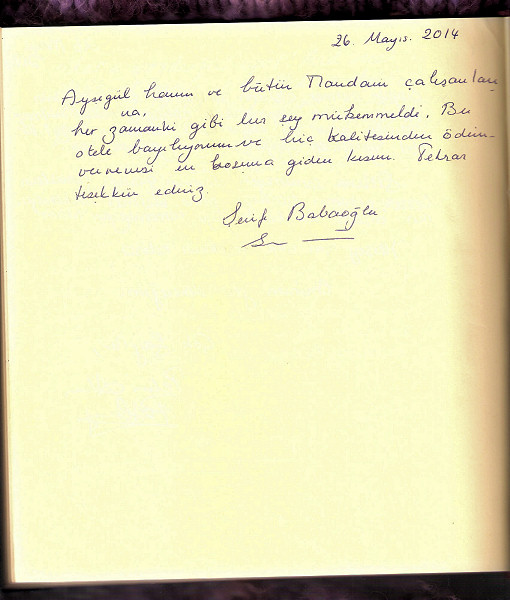 26. Mayıs. 2014
Ayşegül hanım ve bütün Mandain çalışanları
na,
her zamanki gibi her şey mükemmeldi. Bu
otele bayılıyorum ve hiç kalitesinden ödün
vermemesi en hoşuma giden kısım. Tekrar
teşekkür ederiz.
Şerife Babaoğlu